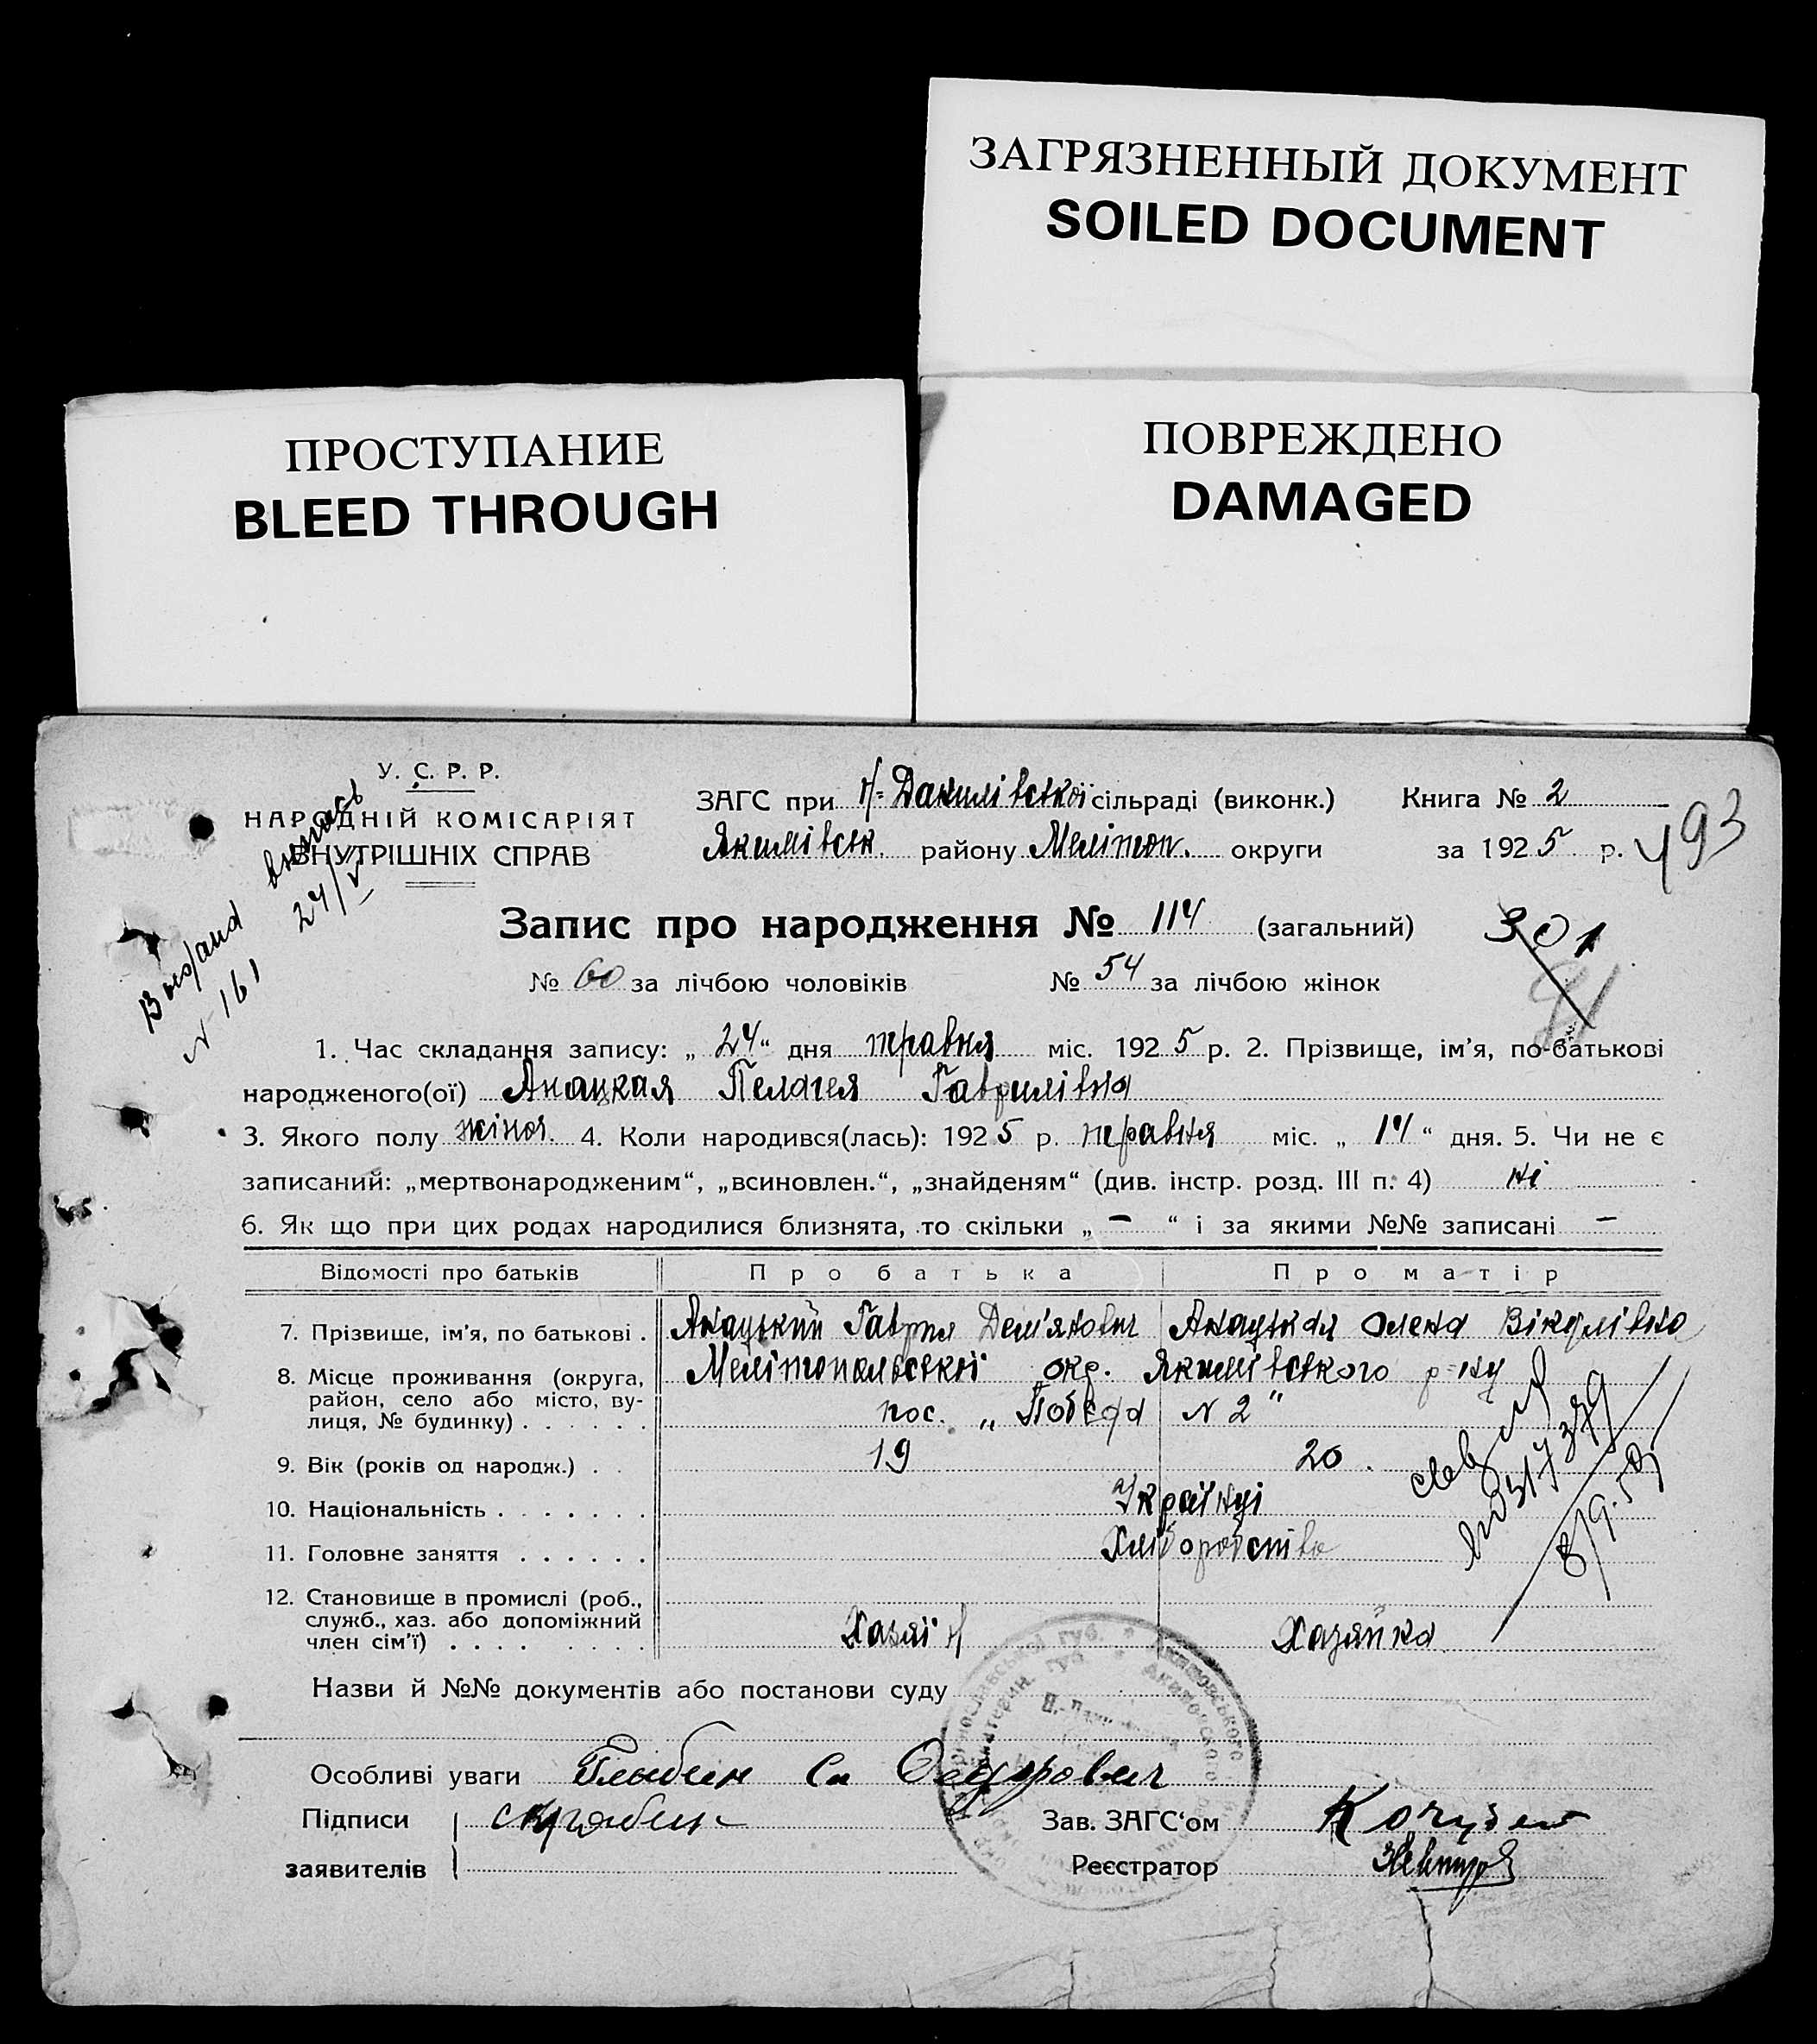 ЗАГРЯЗНЕННЫЙ ДОКУМЕНТ
SOILED DOCUMENT
ПРОСТУПАНИЕ
BLEED THROUGH
ПОВРЕЖДЕНО
DAMAGED
У. С. Р. Р.
НАРОДНІЙ КОМІСАРІЯТ
ВНУТРІШНІХ СПРАВ
ЗАГС при Н-Данилівській сільраді (виконк.) Книга № 2
Якимівськ. району Мелітоп. округи за 1925 р.
493
24/V
N 161
Запис про народження № 114 (загальний)
301
91
№ 60 за лічбою чоловіків № 54 за лічбою жінок
1. Час складання запису: „24“ дня травня міс. 1925 р. 2. Прізвище, ім'я, по-батькові
народженого(ої) Анацкая Пелагея Гаврилівна
3. Якого полу жіноч. 4. Коли народився(лась): 1925 р. травня міс. „14“ дня. 5. Чи не є
записаний: „мертвонародженим“, „всиновлен.“, „знайденям“ (див. інстр. розд. III п. 4) ні
6. Як що при цих родах народилися близнята, то скільки „ — “ і за якими №№ записані —
Відомості про батьків Про батька Про матір
7. Прізвище, ім'я, по батькові . Анацький Гаврил Дем'янович Анацькая Олена Вікулівна
8. Місце проживання (округа, Мелітопольської окр. Якимівського р-ну
район, село або місто, ву-
лиця, № будинку) . . . . . . пос. „Победа N 2"
9. Вік (років од народж.) . . 19 20.
10. Національність . . . . . . . Українці
11. Головне заняття . . . . . . Хліборобство
12. Становище в промислі (роб.,
служб., хаз. або допоміжний
член сім'ї) . . . . . . . . Хазяїн Хазяйка
8/9.59
Назви й №№ документів або постанови суду
Особливі уваги
Підписи
Зав. ЗАГС'ом
заявителів
Реєстратор